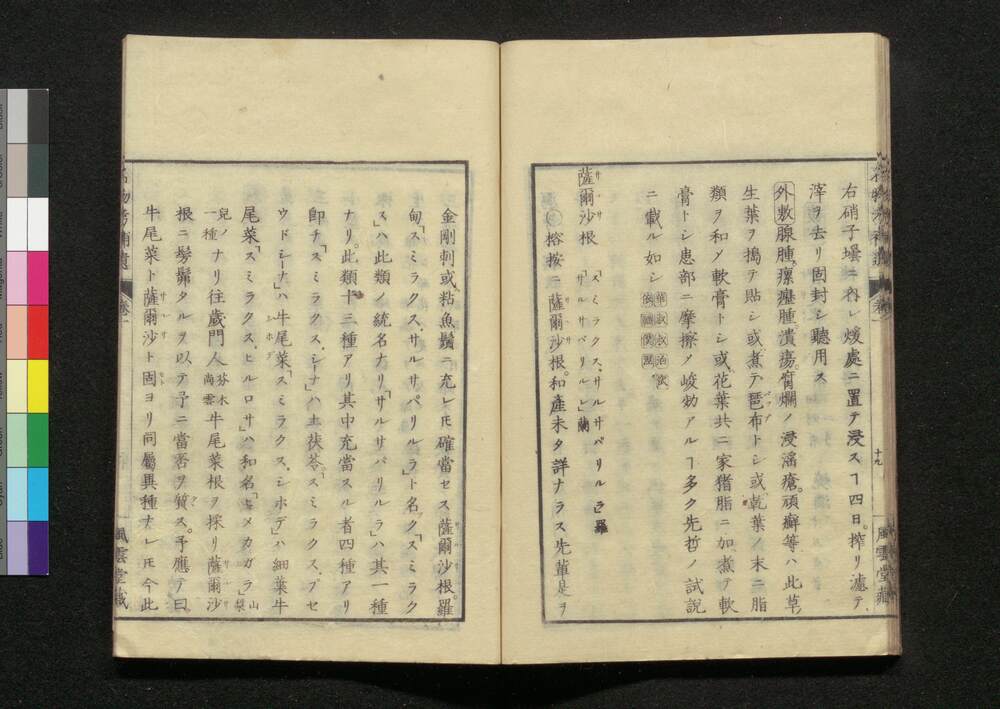 右硝子壜ニ內レ煖處ニ置テ浸スヿ四日。搾リ濾テ
滓ヲ去リ固封シ聽用ス
外敷腺腫瘰癧腫潰瘍。腐爛ノ浸淫瘡。頑癬等ハ此草
生葉ヲ搗テ貼シ或煮テ琶布トシ或乾葉ノ末ニ脂
類ヲ和ソ軟膏トシ或花葉共ニ家猪脂ニ加煮テ軟
膏トシ患部ニ摩擦ソ峻効アルヿ多ク先哲ノ試說
ニ載ル如シ
薩爾沙根 「スミラクス、サルサパリルラ」羅
「サルサパリルレ」蘭
榕按ニ薩爾沙根。和產未タ詳ナラス先輩是ヲ
名物考補遺 卷一 十九 風雲堂藏
金剛刺或粘魚鬚ニ充レ𪜈確當セス薩爾沙根。羅
甸「スミラクス、サルサパリルラ」ト名ク「スミラク
ス」ハ此類ノ統名ナリ「サルサパリルラ」ハ其一種
ナリ。此類十三種アリ其中充當スル者四種アリ
卽チ「スミラクス、シーナ」ハ土茯苓「スミラクス、プセ
ウドシーナ」ハ牛尾菜「スミラクス、シホデ」ハ細葉牛
尾菜「スミラクス、ヒルロサ」ハ和名「ヒメカガラ」山
兒ノ一種ナリ往歲門人芬木尚雲牛尾菜根ヲ採リ薩爾沙
根ニ髣髴タルヲ以テ予ニ當否ヲ質ス。予應テ曰
牛尾菜ト薩爾沙ト固ヨリ同屬異種ナレ𪜈今此
名物考補遺 卷一 風雲堂藏